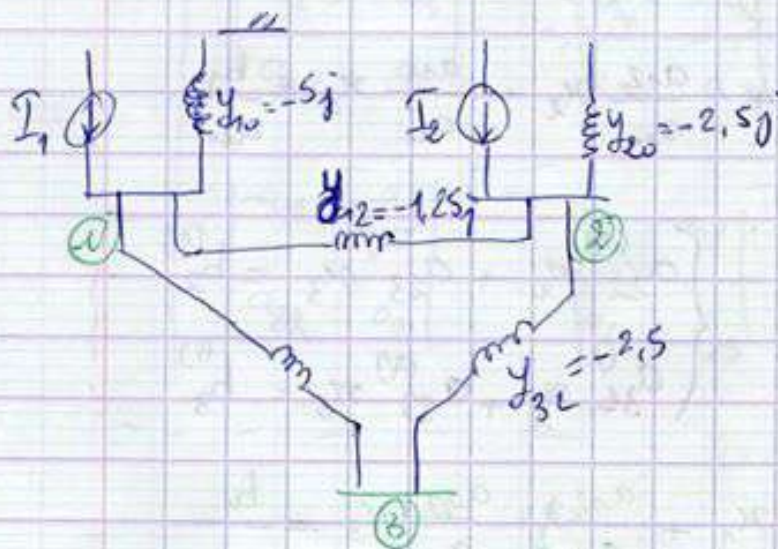 I₁
y₁₀ = -5j
I₂
y₂₀ = -2,5j
y₁₂ = -1,25j
1
2
y₃₂ = -2,5
3